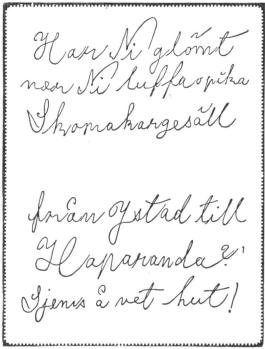 Har Ni glömt
när Ni luffa o pika
Skomakargesäll
från Ystad till
Haparanda?
Tjenis å vet hut!